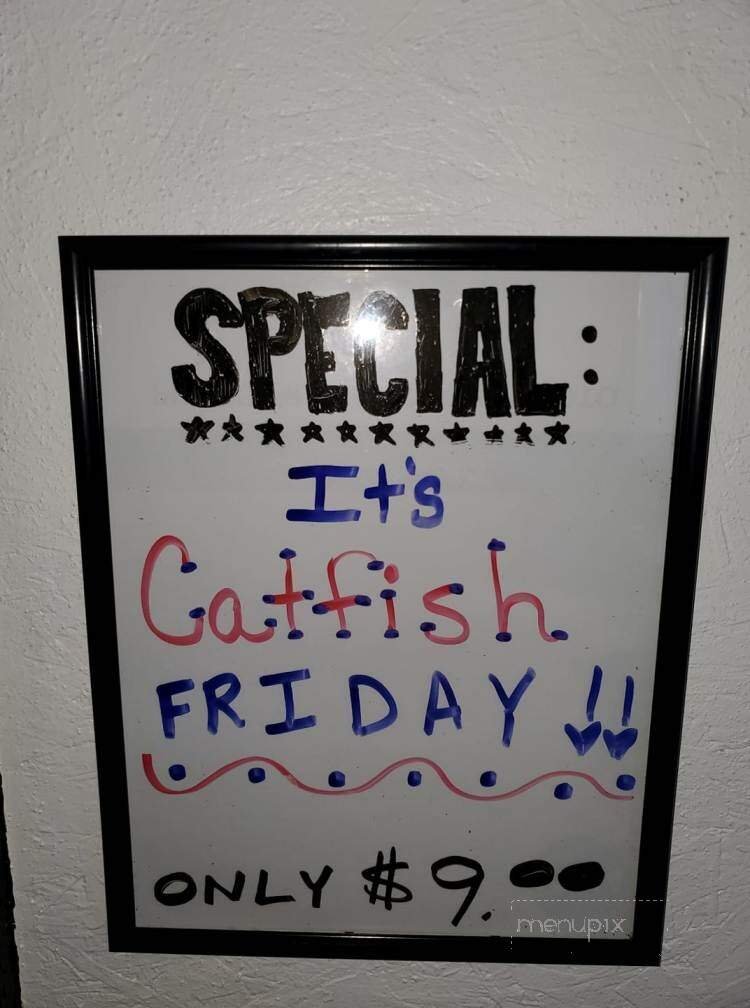 SPECIAL:
It's
Catfish
FRIDAY !!
ONLY $9.00
menupix